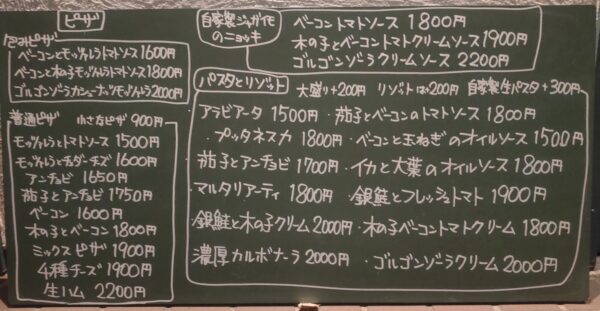 ピザ
包みピザ
ベーコンとモッツァレラトマトソース1600円
ベーコンと木の子モッツァレラトマトソース1800円
ゴルゴンゾラカシューナッツモッツァレラ2000円
普通ピザ 小さなピザ 900円
モッツァレラとトマトソース 1500円
モッツァレラとチェダーチーズ 1600円
アンチョビ 1650円
茄子とアンチョビ 1750円
ベーコン 1600円
木の子とベーコン 1800円
ミックスピザ 1900円
4種チーズ 1900円
生ハム 2200円
自家製ジャガイモのニョッキ
ベーコントマトソース 1800円
木の子とベーコントマトクリームソース1900円
ゴルゴンゾーラクリームソース 2200円
パスタとリゾット 大盛り+200円 リゾットは+200円 自家製生パスタ+300円
アラビアータ 1500円・茄子とベーコンのトマトソース 1800円
・プッタネスカ 1800円・ベーコンと玉ねぎのオイルソース 1500円
茄子とアンチョビ 1700円・イカと大葉のオイルソース 1800円
・マルタリアーティ 1800円・銀鮭とフレッシュトマト 1900円
・銀鮭と木の子クリーム 2000円・木の子ベーコントマトクリーム 1800円
濃厚カルボナーラ 2000円・ゴルゴンゾーラクリーム 2000円